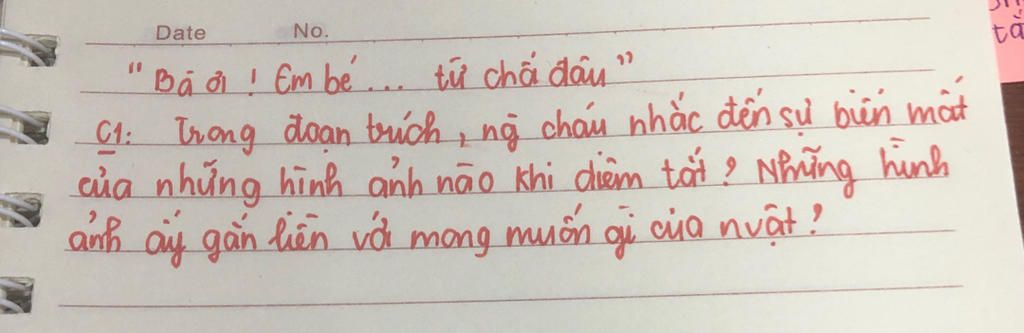 Date No.
"Bà ơi! Em bé... từ chối đâu"
C1: Trong đoạn trích, ng cháu nhắc đến sự biến mất
của những hình ảnh nào khi diêm tắt? Những hình
ảnh ấy gắn liền với mong muốn gì của nvật?
tấ